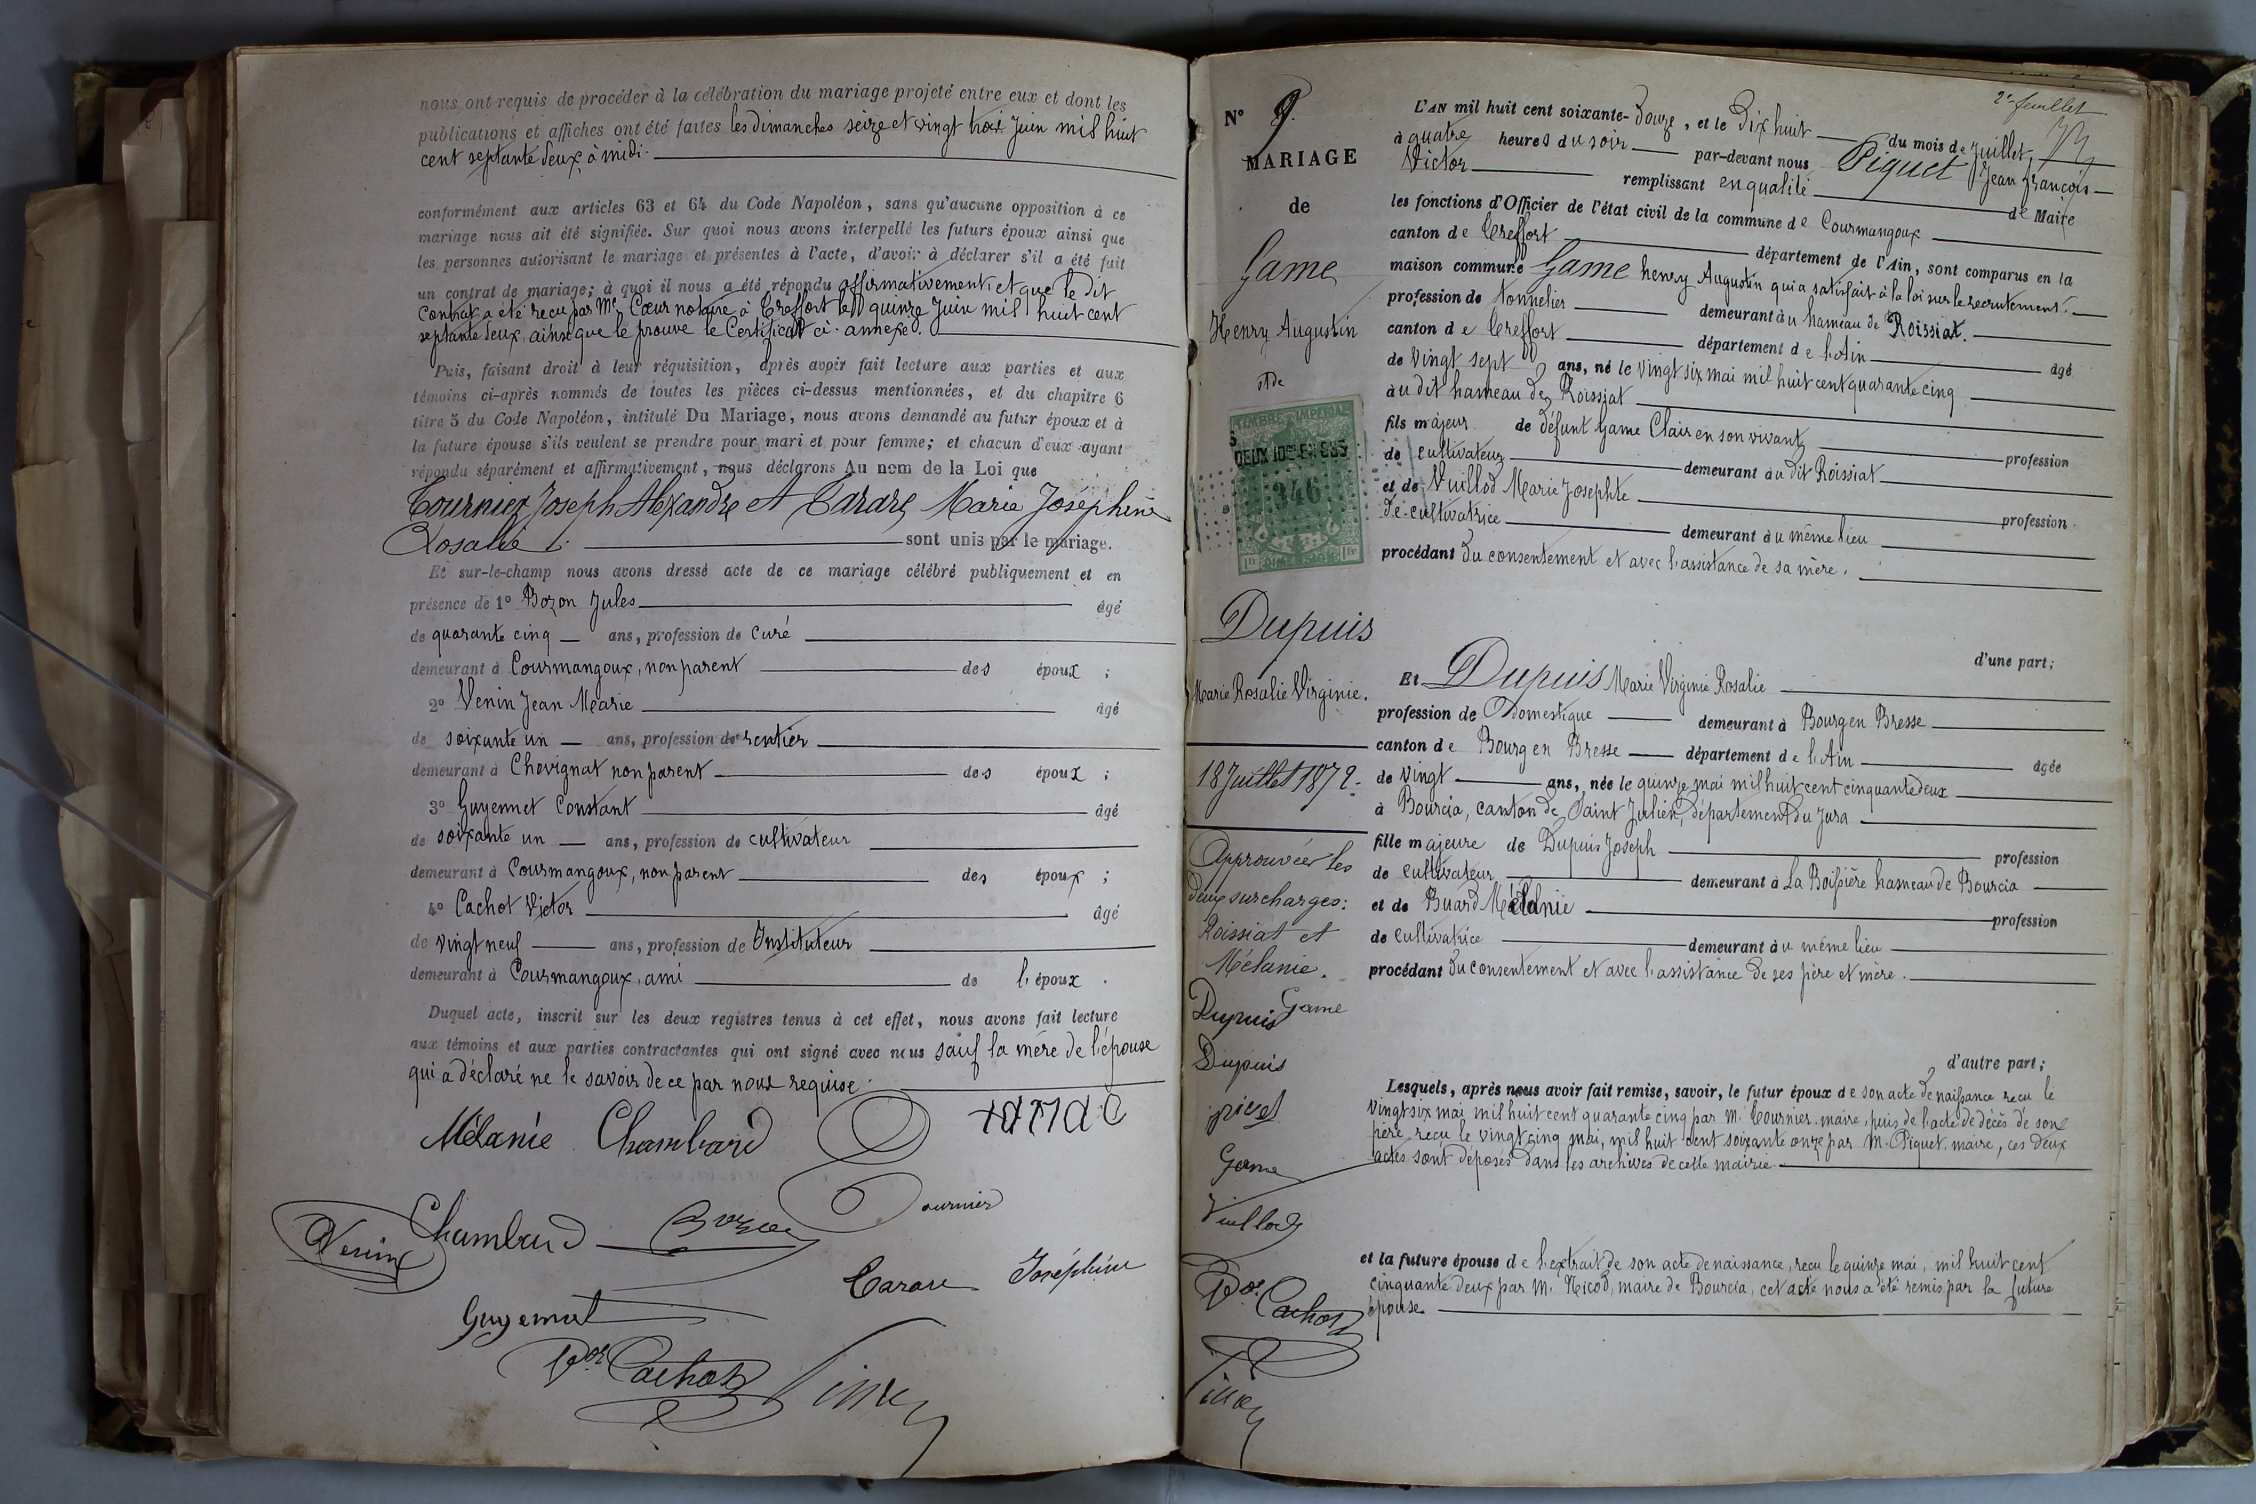 nous ont requis de procéder à la célébration du mariage projeté entre eux et dont les
publications et affiches ont été faites les dimanches seize et vingt trois Juin mil huit
cent septante deux à midi.
conformément aux articles 63 et 64 du Code Napoléon, sans qu'aucune opposition à ce
mariage nous ait été signifiée. Sur quoi nous avons interpellé les futurs époux ainsi que
les personnes autorisant le mariage et présentes à l'acte, d'avoir à déclarer s'il a été fait
un contrat de mariage; à quoi il nous a été répondu affirmativement et que le dit
contrat a été recu par Me Cœur notaire à Treffort le quinze Juin mil huit cent
septante deux, ainsi que le prouve le Certificat ci-annexé.
Puis, faisant droit à leur réquisition, après avoir fait lecture aux parties et aux
témoins ci-après nommés de toutes les pièces ci-dessus mentionnées, et du chapitre 6
titre 5 du Code Napoléon, intitulé Du Mariage, nous avons demandé au futur époux et à
la future épouse s'ils veulent se prendre pour mari et pour femme; et chacun d'eux ayant
répondu séparément et affirmativement, nous déclarons Au nom de la Loi que
Tournier Joseph Alexandre et Carare Marie Joséphine
Rosalie sont unis par le mariage.
Et sur-le-champ nous avons dressé acte de ce mariage célébré publiquement et en
présence de 1º Bozon Jules âgé
de quarante cinq ans, profession de curé
demeurant à Courmangoux, non parent des époux ;
2º Venin Jean Marie âgé
de soixante un ans, profession de rentier
demeurant à Chevignat non parent des époux ;
3º Guyennet Constant âgé
de soixante un ans, profession de cultivateur
demeurant à Courmangoux, non parent des époux ;
4º Cachot Victor âgé
de vingt neuf ans, profession de Instituteur
demeurant à Courmangoux, ami de l'époux .
Duquel acte, inscrit sur les deux registres tenus à cet effet, nous avons fait lecture
aux témoins et aux parties contractantes qui ont signé avec nous sauf la mère de l'épouse
qui a déclaré ne le savoir de ce par nous requise.
Mélanie Chambard
Tournier
Venin Chambard Bozon
Carare Joséphine
Guyennet
Vor Cachot
Nº 9.
MARIAGE
de
Game
Henry Augustin
et de
TIMBRE IMPÉRIAL
DEUX 10es EN SUS
946
1fr 1fr
DIMENSION
Dupuis
Marie Rosalie Virginie.
18 Juillet 1872.
Approuvées les
deux surcharges:
Roissiat et
Mélanie.
Game
Dupuis
Dupuis
Game
Vuillod
Vor Cachot
2e feuillet
L'AN mil huit cent soixante-douze, et le Dix huit du mois de Juillet,
à quatre heures du soir par-devant nous Piquet Jean françois
Victor remplissant en qualité de Maire
les fonctions d'Officier de l'état civil de la commune de Courmangoux
canton de Treffort département de l'Ain, sont comparus en la
maison commune Game henry Augustin qui a satisfait à la loi sur le recrutement.
profession de tonnelier demeurant au hameau de Roissiat.
canton de Treffort département de l'Ain âgé
de vingt sept ans, né le vingt six mai mil huit cent quarante cinq
au dit hameau de Roissiat
fils majeur de défunt Game Clair en son vivant profession
de cultivateur demeurant au dit Roissiat
et de Vuillod Marie Josephte profession
de cultivatrice demeurant au même lieu
procédant du consentement et avec l'assistance de sa mère.
d'une part;
Et Dupuis Marie Virginie Rosalie
profession de domestique demeurant à Bourg en Bresse
canton de Bourg en Bresse département de l'Ain âgée
de vingt ans, née le quinze mai mil huit cent cinquante deux
à Bourcia, canton de Saint Julien, département du Jura
fille majeure de Dupuis Joseph profession
de cultivateur demeurant à La Boissière hameau de Bourcia
et de Buard Mélanie profession
de cultivatrice demeurant au même lieu
procédant du consentement et avec l'assistance de ses père et mère.
d'autre part;
Lesquels, après nous avoir fait remise, savoir, le futur époux de son acte de naissance recu le
vingt six mai mil huit cent quarante cinq par M. Tournier maire, puis de l'acte de décès de son
père recu le vingt cinq mai, mil huit cent soixante onze par M. Piquet maire, ces deux
actes sont déposés dans les archives de cette mairie.
et la future épouse de l'extrait de son acte de naissance, recu le quinze mai, mil huit cent
cinquante deux par M. Nicod, maire de Bourcia, cet acte nous a été remis par la future
épouse.